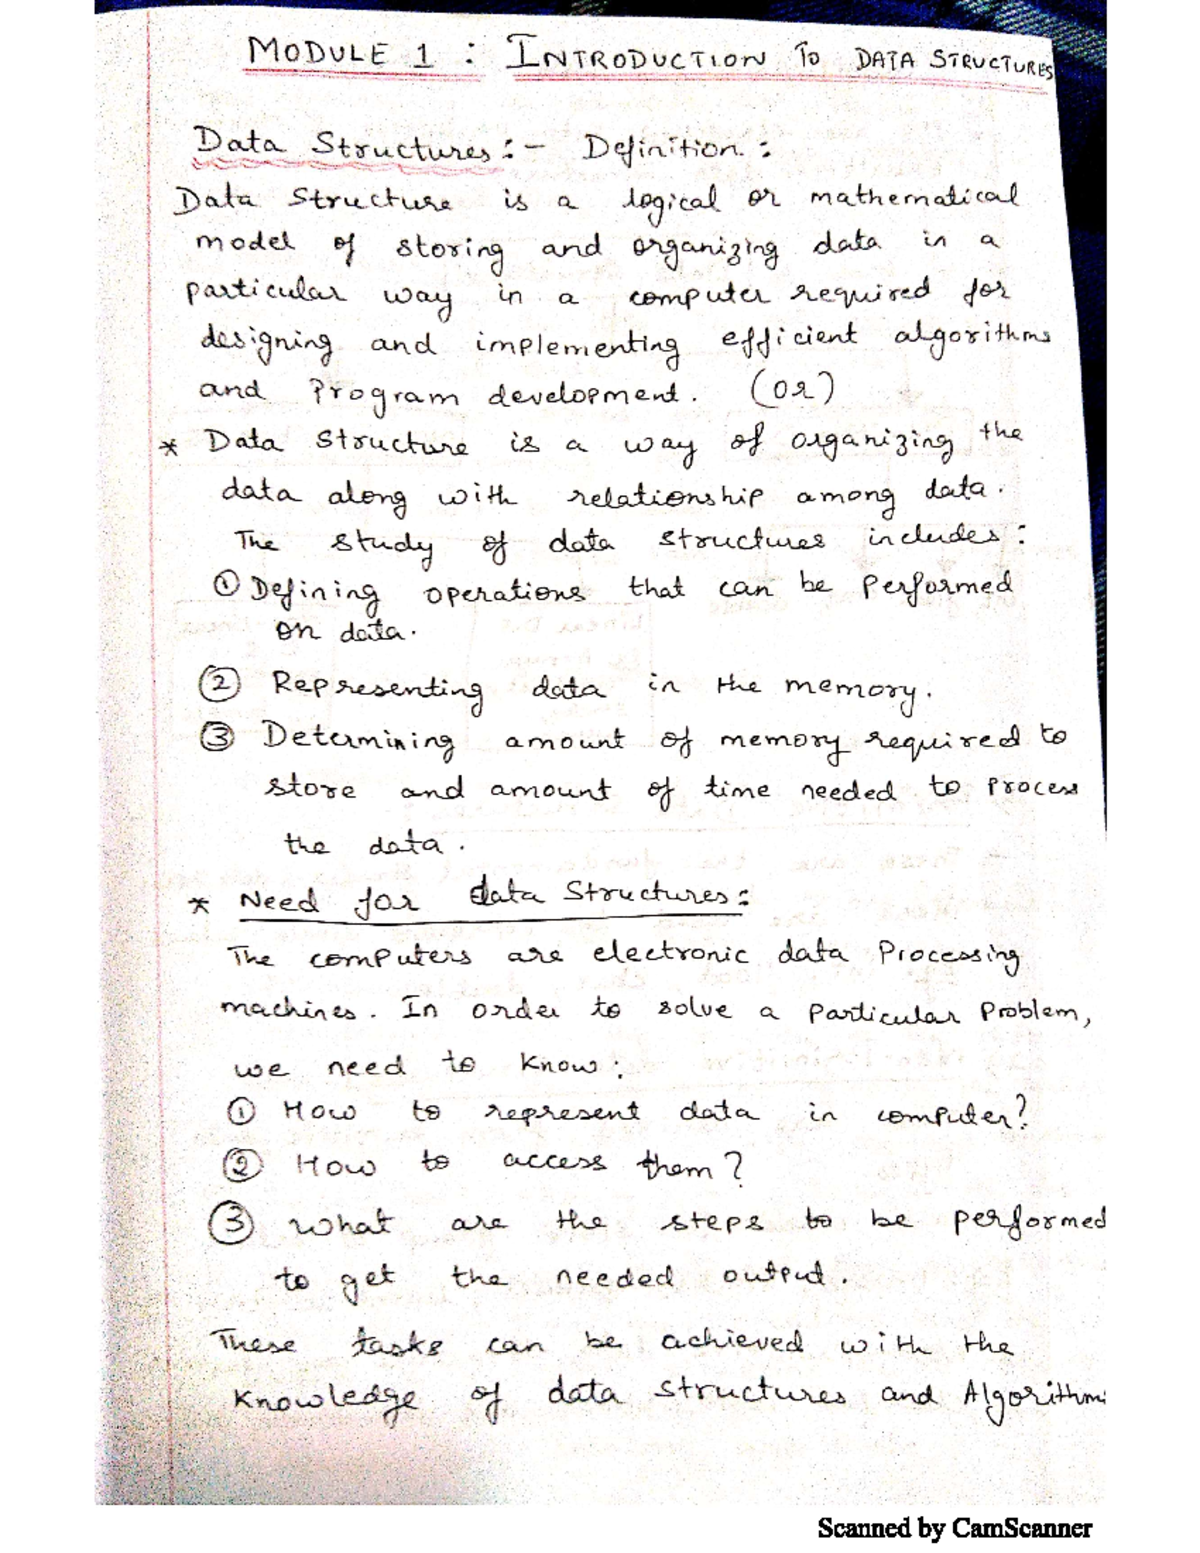 MODULE 1 : INTRODUCTION TO DATA STRUCTURES
Data Structures :- Definition. :
Data Structure is a logical or mathematical
model of storing and organizing data in a
particular way in a computer required for
designing and implementing efficient algorithms
and Program development. (or)
* Data Structure is a way of organizing the
data along with relationship among data.
The study of data structures includes :
① Defining operations that can be Performed
on data.
② Representing data in the memory.
③ Determining amount of memory required to
store and amount of time needed to Process
the data.
* Need for data Structures:
The computers are electronic data Processing
machines. In order to solve a Particular Problem,
we need to know:
① How to represent data in computer?
② How to access them?
③ What are the steps to be performed
to get the needed output.
These tasks can be achieved with the
Knowledge of data Structures and Algorithm
Scanned by CamScanner